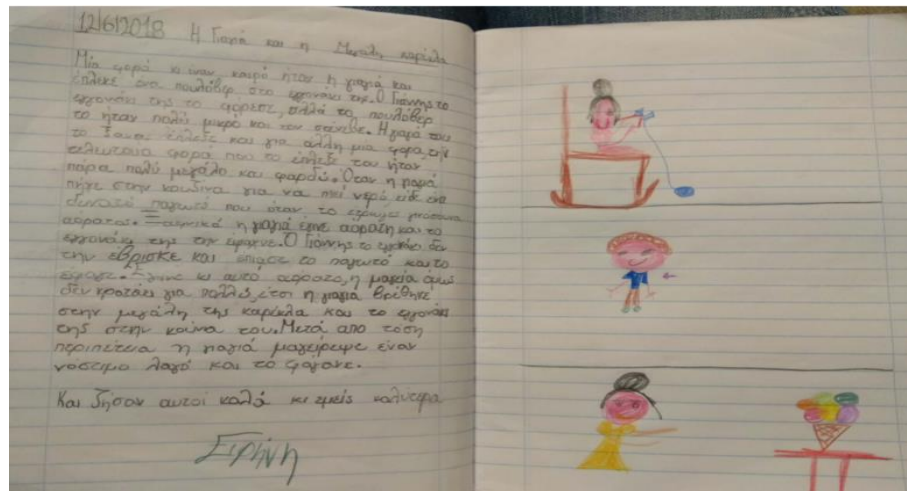 12/6/2018 Η Γιαγιά και η Μεγάλη καρέκλα
Μία φορά κι έναν καιρό ήταν η γιαγιά και
έπλεκε ένα πουλόβερ στο εγγονάκι της. Ο Γιάννης το
εγγονάκι της το φόρεσε, αλλά το πουλόβερ
το ήταν πολύ μικρό και τον στένευε. Η γιαγιά του
το έπλεξε και για άλλη μια φορά, την
τελευταία φορά που το έπλεξε του ήταν
πάρα πολύ μεγάλο και φαρδύ. Όταν η γιαγιά
πήγε στην κουζίνα για να πιεί νερό, είδε ένα
παγωτό που όταν το έτρωγες γινόσουνα
αόρατος. Ξαφνικά η γιαγιά έγινε αόρατη και το
εγγονάκι της την έψαχνε. Ο Γιάννης το εγγονάκι δεν
την έβρισκε και έπιασε το παγωτό και το
έφαγε. Έγινε κι αυτό αόρατο, η μαγεία όμως
δεν κρατάει για πολύ, έτσι η γιαγιά βρέθηκε
στην μεγάλη της καρέκλα και το εγγονάκι
της στην κούνια του. Μετά από τόση
περιπέτεια η γιαγιά μαγείρεψε έναν
νόστιμο λαγό και το φάγανε.
Και ζήσαν αυτοί καλά κι εμείς καλύτερα
Ειρήνη